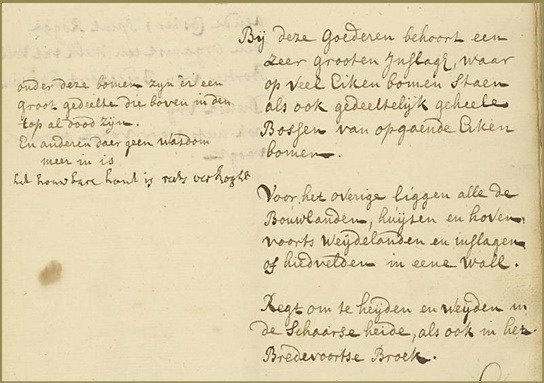 Bij deze Goederen behoort een
zeer grooten Inslagh, waar
op veel Eiken bomen Staen
als ook gedeeltelijk geheele
Bossen van opgaende Eiken
bomen.
Voor het overige liggen alle de
Bouwlanden, huijsen en hoven
voorts Weijdelanden en inslagen
of hiedvelden in eene Wall.
Regt om te heijden en Weijden in
de Schaarse heide, als ook in het
Bredevoortse Broek.
onder deze bomen zyn er een
groot gedeelte die boven in den
top al dood zyn.
En anderen daer geen wasdom
meer in is
het houwbare hout is reets verkogt